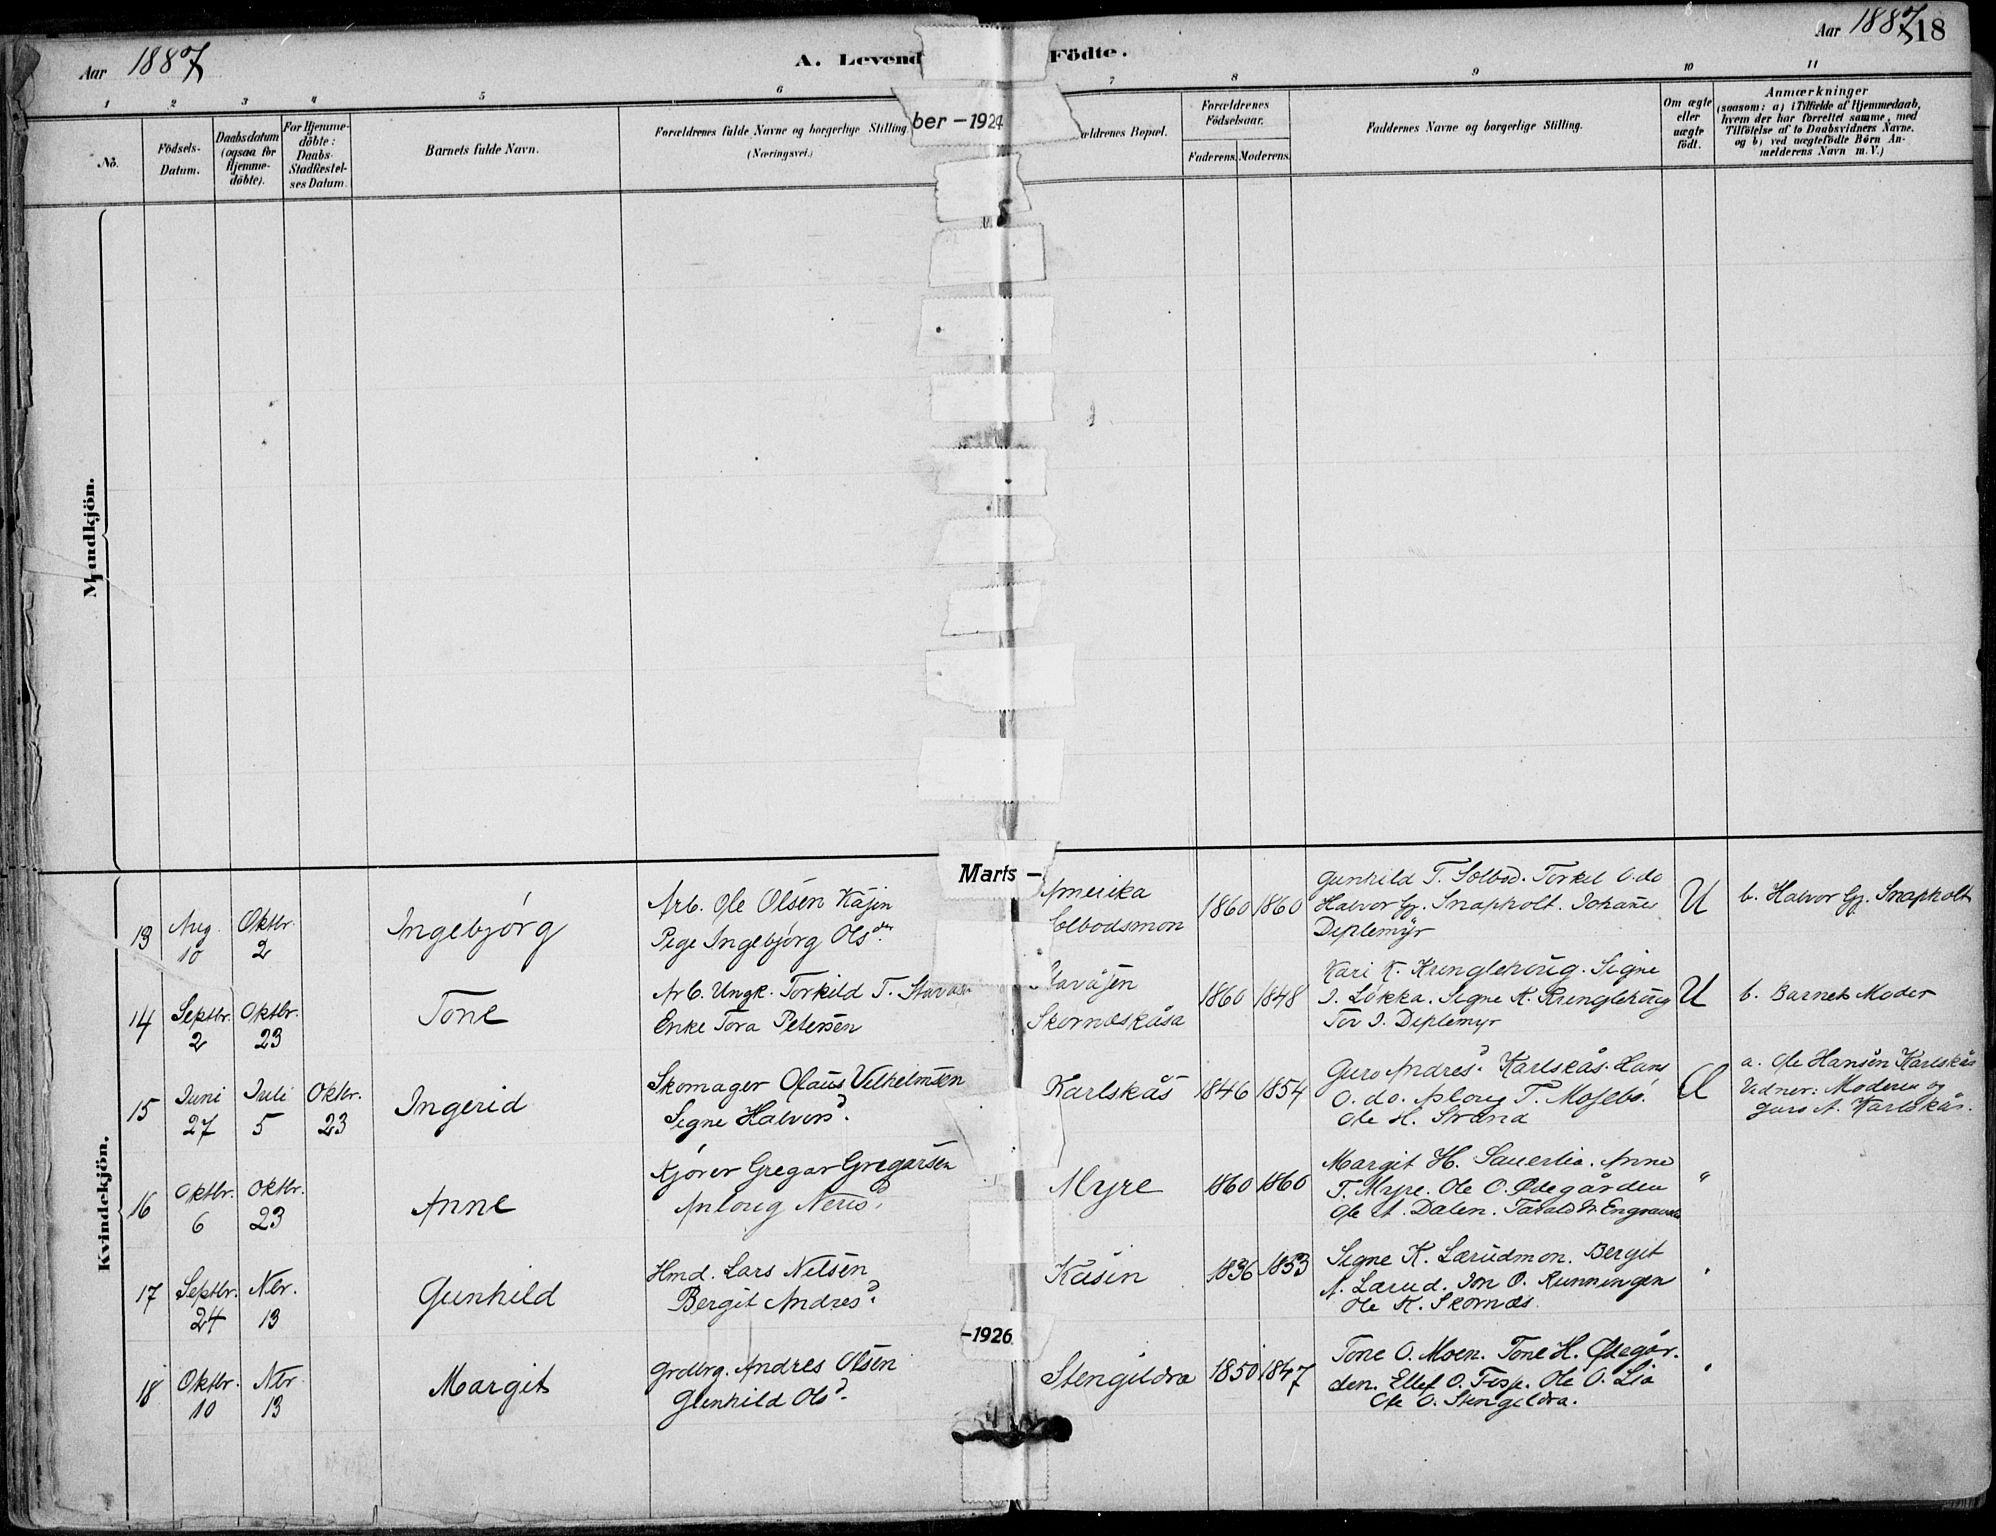 Aar 1887
A. Levend
Födte.
Aar 1887
18
1 2 3 4 5 6 7 8 9 10 11
No.
Födsels-
Datum.
Daabsdatum
(ogsaa for
Hjemme-
döbte).
For Hjemme-
döbte:
Daabs-
Stadfæstel-
ses Datum.
Barnets fulde Navn.
Forældrenes fulde Navne og borgerlige Stilling
(Næringsvei.)
ber –1924
ældrenes Bopæl.
Forældrenes
Födselsaar.
Faderens. Moderens.
Faddernes Navne og borgerlige Stilling.
Om ægte
eller
uægte
født.
Anmærkninger
(saasom: a) i Tilfælde af Hjemmedaab,
hvem der har forrettet samme, med
Tilföielse af to Daabsvidners Navne.
og b) ved uægtefödte Börn An-
melderens Navn m. V.)
Mandkjön.
Marts –
Kvindekjön.
13
Aug.
10
Oktbr.
2
Ingebjörg
Arb. Ole Olsen Kåjin
Pige Ingebjörg Olsdr.
Amerika
Solbodsmon
1860 1860
Gunhild T. Solbod. Torkel O. do
Halvor Gj. Snapholt. Johanes
Diplemyr
U
b. Halvor Gj. Snapholt
14
Septbr.
2
Oktbr.
23
Tone
Arb. Ungk. Torkild T.
Enke Tora Petersen
Stavåsen
Skornæskåsa
1860 1848
Kari K. Kringlehoug. Signe
J. Løkka. Signe K. Kringlehoug
Tov J. Diplemyr
U
b. Barnets Moder
15
Juni
27
Juli
5
Oktbr.
23
Ingerid
Skomager Olaus Vilhelmsen
Signe Halvorsd.
Karlskås
1846 1854
Guro Andresd. Karlskås. Hans
O. do. Aploug T. Mosebö.
Ole H. Strand
a. Ole Hansen Karlskås
Vidner: Moderen og
Guro A. Karlskås.
16
Oktbr.
6
Oktbr.
23
Anne
Kjörer Gregar Gregarsen
Anloug Nerisd.
Myre
1860 1860
Margit H. Sauerlia. Anne
T. Myre. Ole O. Ødegården
Ole A. Dalen.
"
17
Septbr.
24
Nbr.
13
Gunhild
Hmd. Lars Nilsen
Bergit Andresd.
Kåsin
1836 1853
Signe K. Lærudmon. Bergit
N. Lærud. Jon O. Runningen
Ole K. Skornæs.
"
–1926.
18
Oktbr.
10
Nbr.
13
Margit
Grdbrg. Andres Olsen
Gunhild Olsd.
Stengildra
1850 1847
Tone O. Moen. Tone H. Ødegår-
den. Ellef O. Fosse. Ole O. Lia
Ole O. Stengildra.
"